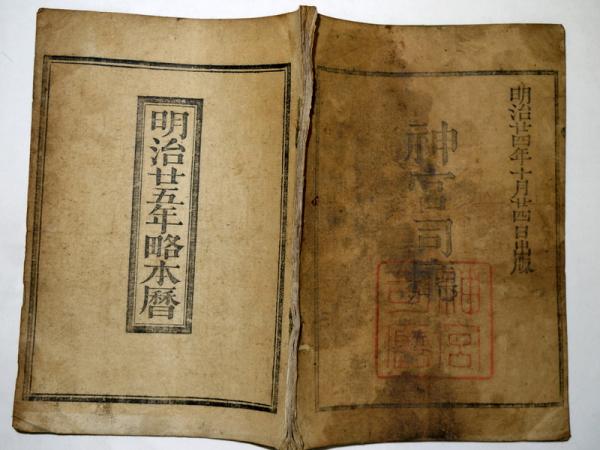 明治廿四年十月廿四日出版
神宮司廳
神宮
司廳
明治廿五年略本暦